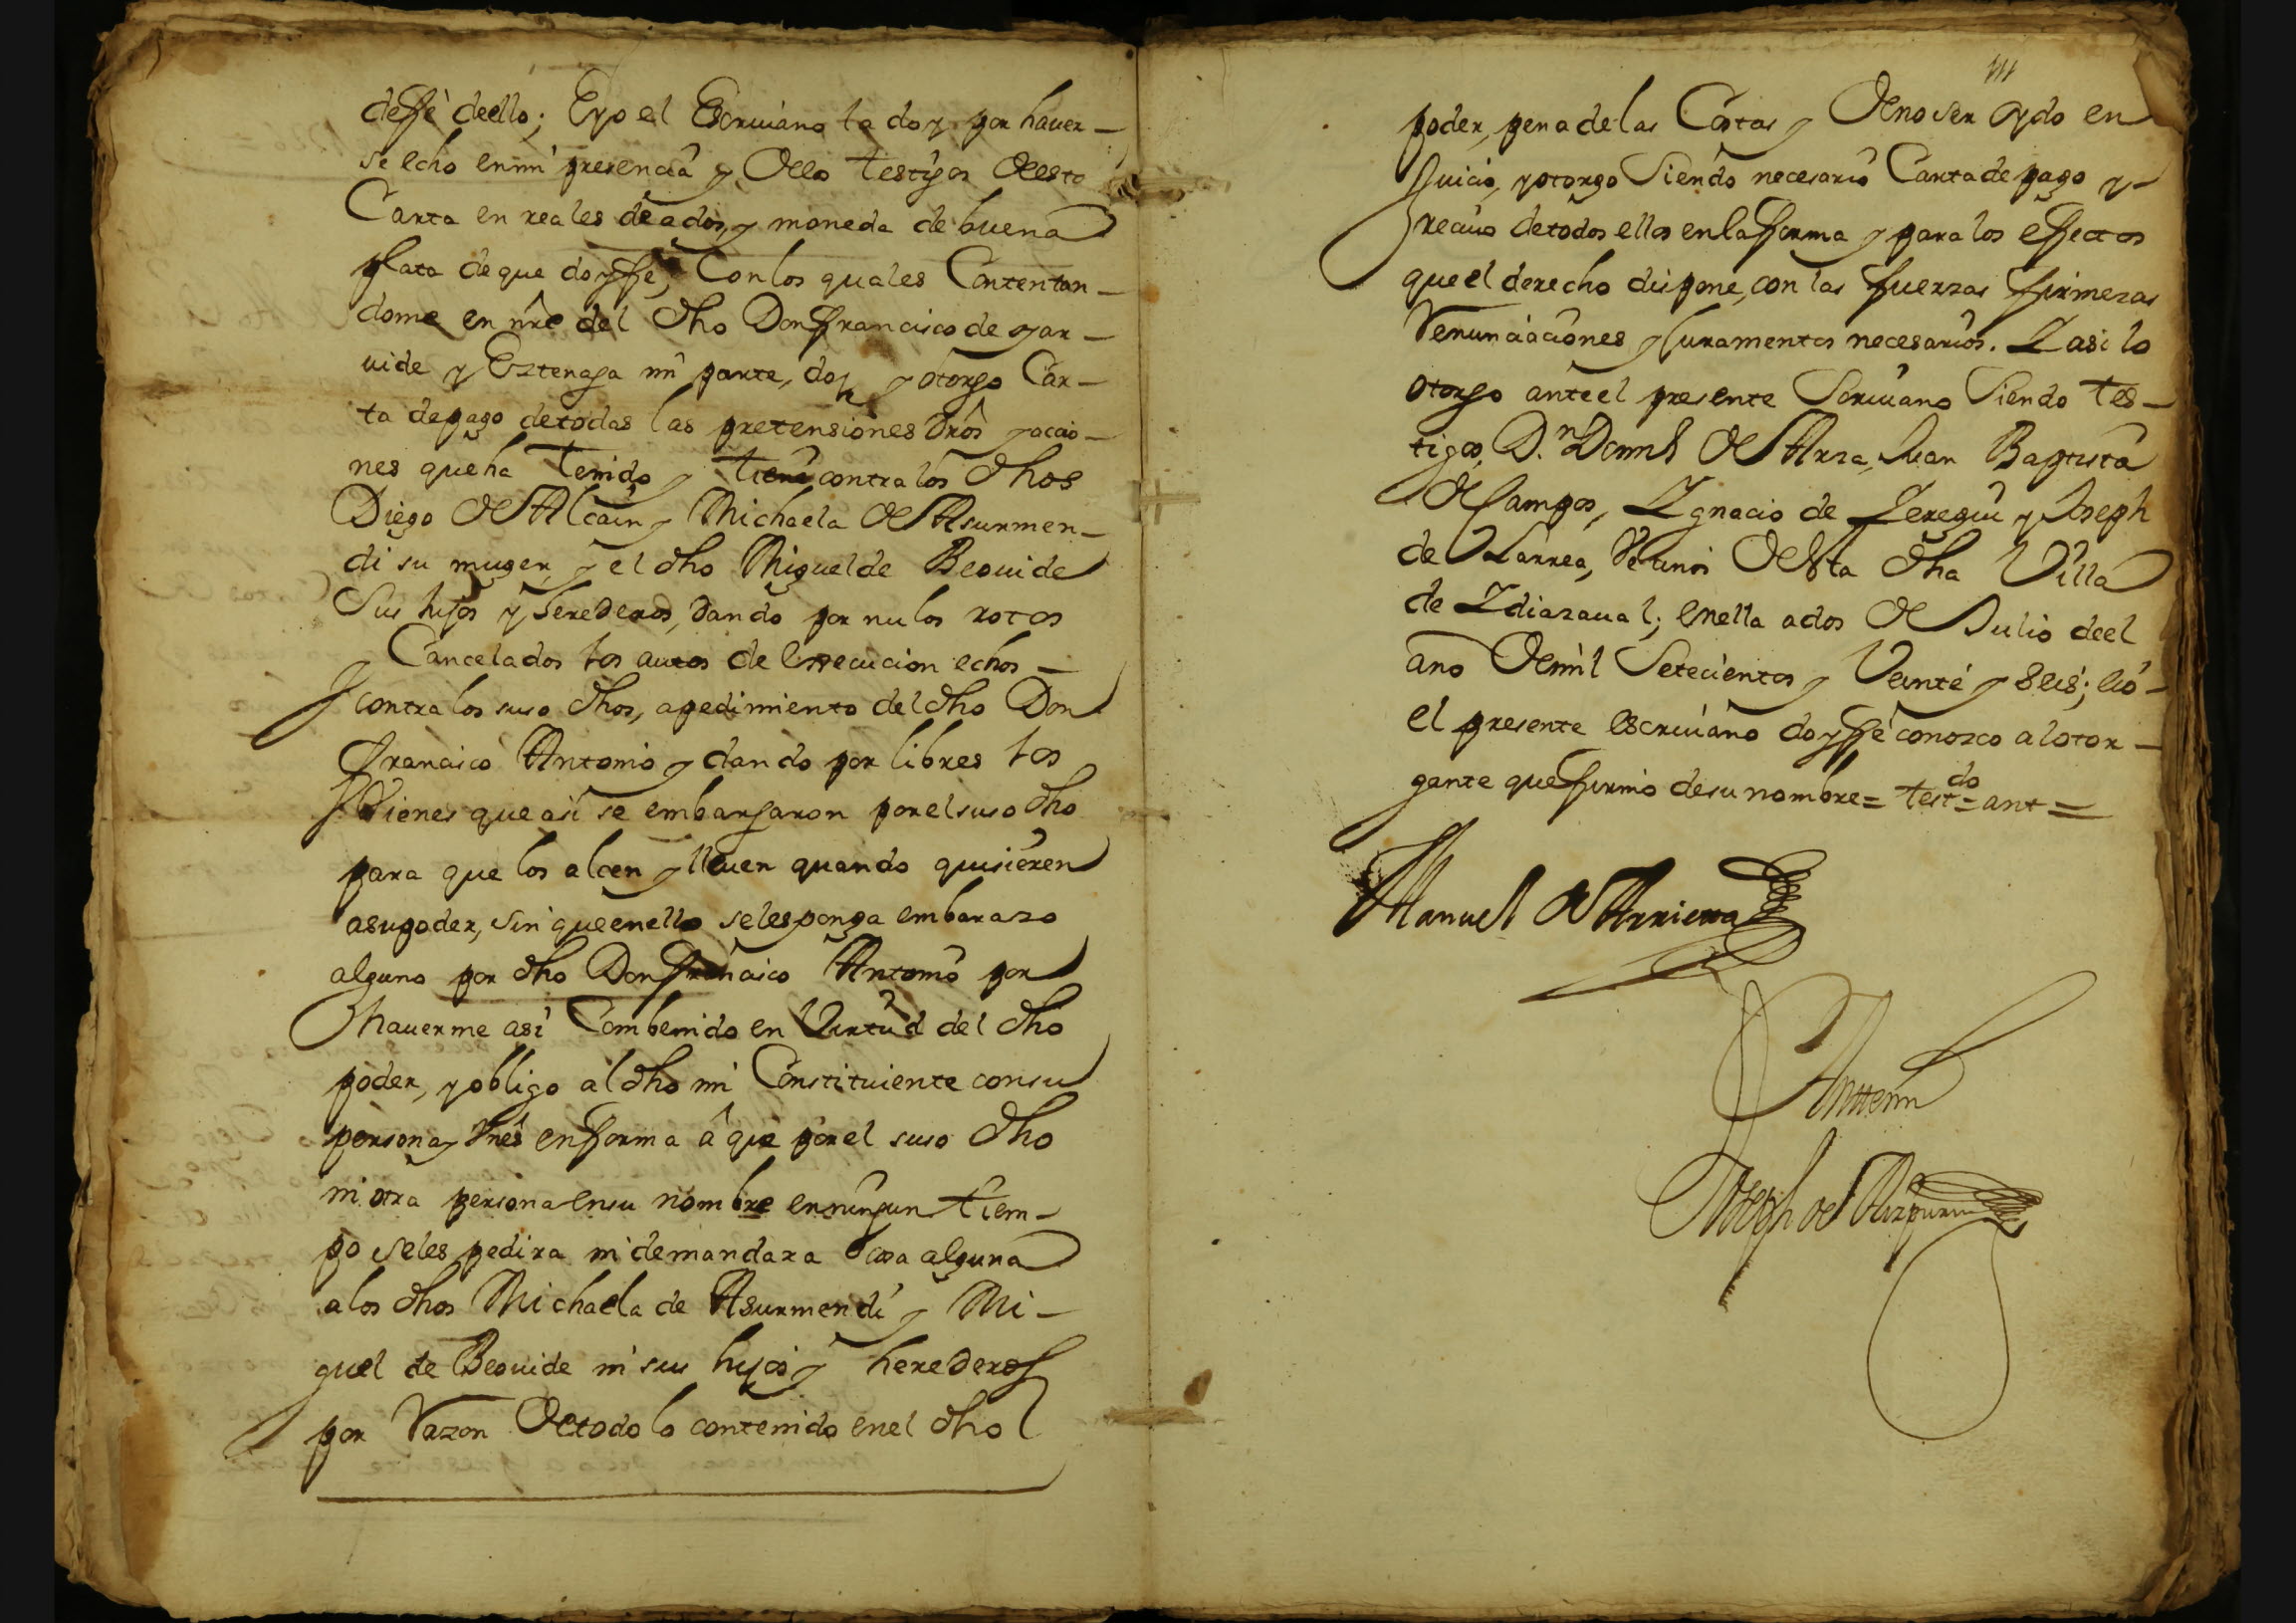 deffè deello; Eyo el Escriuano la doy por hauer-
se echo enmi presencia y Dellos testigos Desta
Carta en reales de ados, y moneda de buena
plata deque doyffe, Conlos quales Contentan-
dome en nre del dho Donffrancisco de ygar-
uide y Eztenaga mi parte, doy y otorgo Car-
ta depago detodas las pretensiones drôs yaccio-
nes queha tenido y tiene contra los dhos
Diego De Alcain y Michaela De Asurmen-
di su muger, y el dho Miguel de Beouide
Sus hijos y herederos, dando por nulos rotos
y Cancelados los autos de Execucion echos-
contra los suso dhos, apedimiento del dho Don
Francisco Antonio y dando por libres los
Vienes que asi se embargaron por el suso dho
para que los alcen y lleuen quando quisieren
asupoder, sin queenello selesponga embarazo
alguno por dho Donffrancisco Antonio por
hauerme asi Combenido en Virtud del dho
poder, yobligo al dho mi Constituiente consu
persona y Vnês enfforma â que por el suso dho
ni otra persona ensu nombre enningun tiem-
po seles pedira ni demandara cosa alguna
alos dhos Michaela de Asurmendi y Mi-
guel de Beouide ni sus hijos y herederos
por Razon Detodo lo contenido enel dho
111
poder, pena delas Costas y Deno ser oydo en
Juicio, yotorgo Siendo necesario Carta de pago y-
reciuo detodos ellos enlafforma y para los effectos
que el derecho dispone, con las fuerzas firmezas
Renunciaciones y Juramentos necesarios. Y asi lo
otorgo ante el presente Scriuano Siendo tes-
tigos, D.n Domi De Arza, Juan Baptista
De Campos, Ygnacio de Yeregui y Joseph
de Larrea, Vecinos Desta dha Villa
de Ydiazaual; enella ados De Julio deel
año Demil Setecientos y Veinte y seis; eió-
el presente escriuano doyffé conozco alotor-
gante queffirmó desu nombre= testdo=ant=
Manuel De Arrieta
Antemi
Joseph de Aizpuru